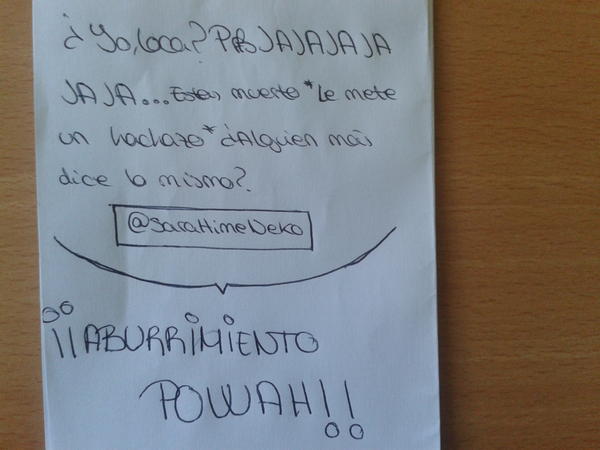 ¿Yo, loca? PBJAJAJAJA
JAJA... Estas muerto *Le mete
un hachazo* ¿Alguien más
dice lo mismo?
@SaraHimeNeko
¡¡ABURRIMIENTO
POWAH!!